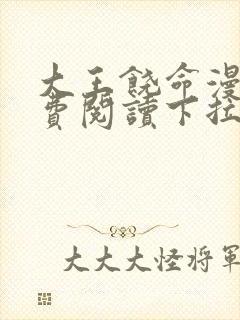 大王饶命漫
費閱讀下拉
大大大怪将軍